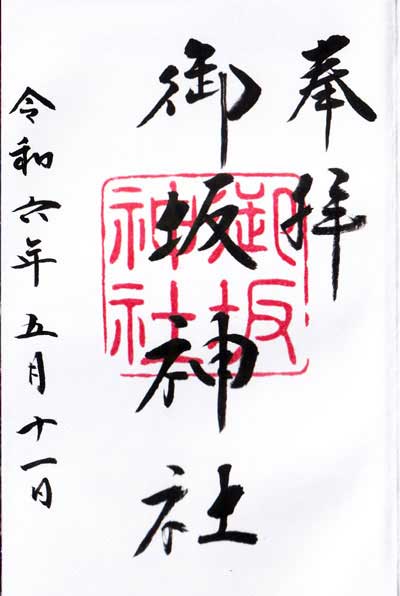 奉拝
御坂神社
御坂
神社
令和六年五月十一日